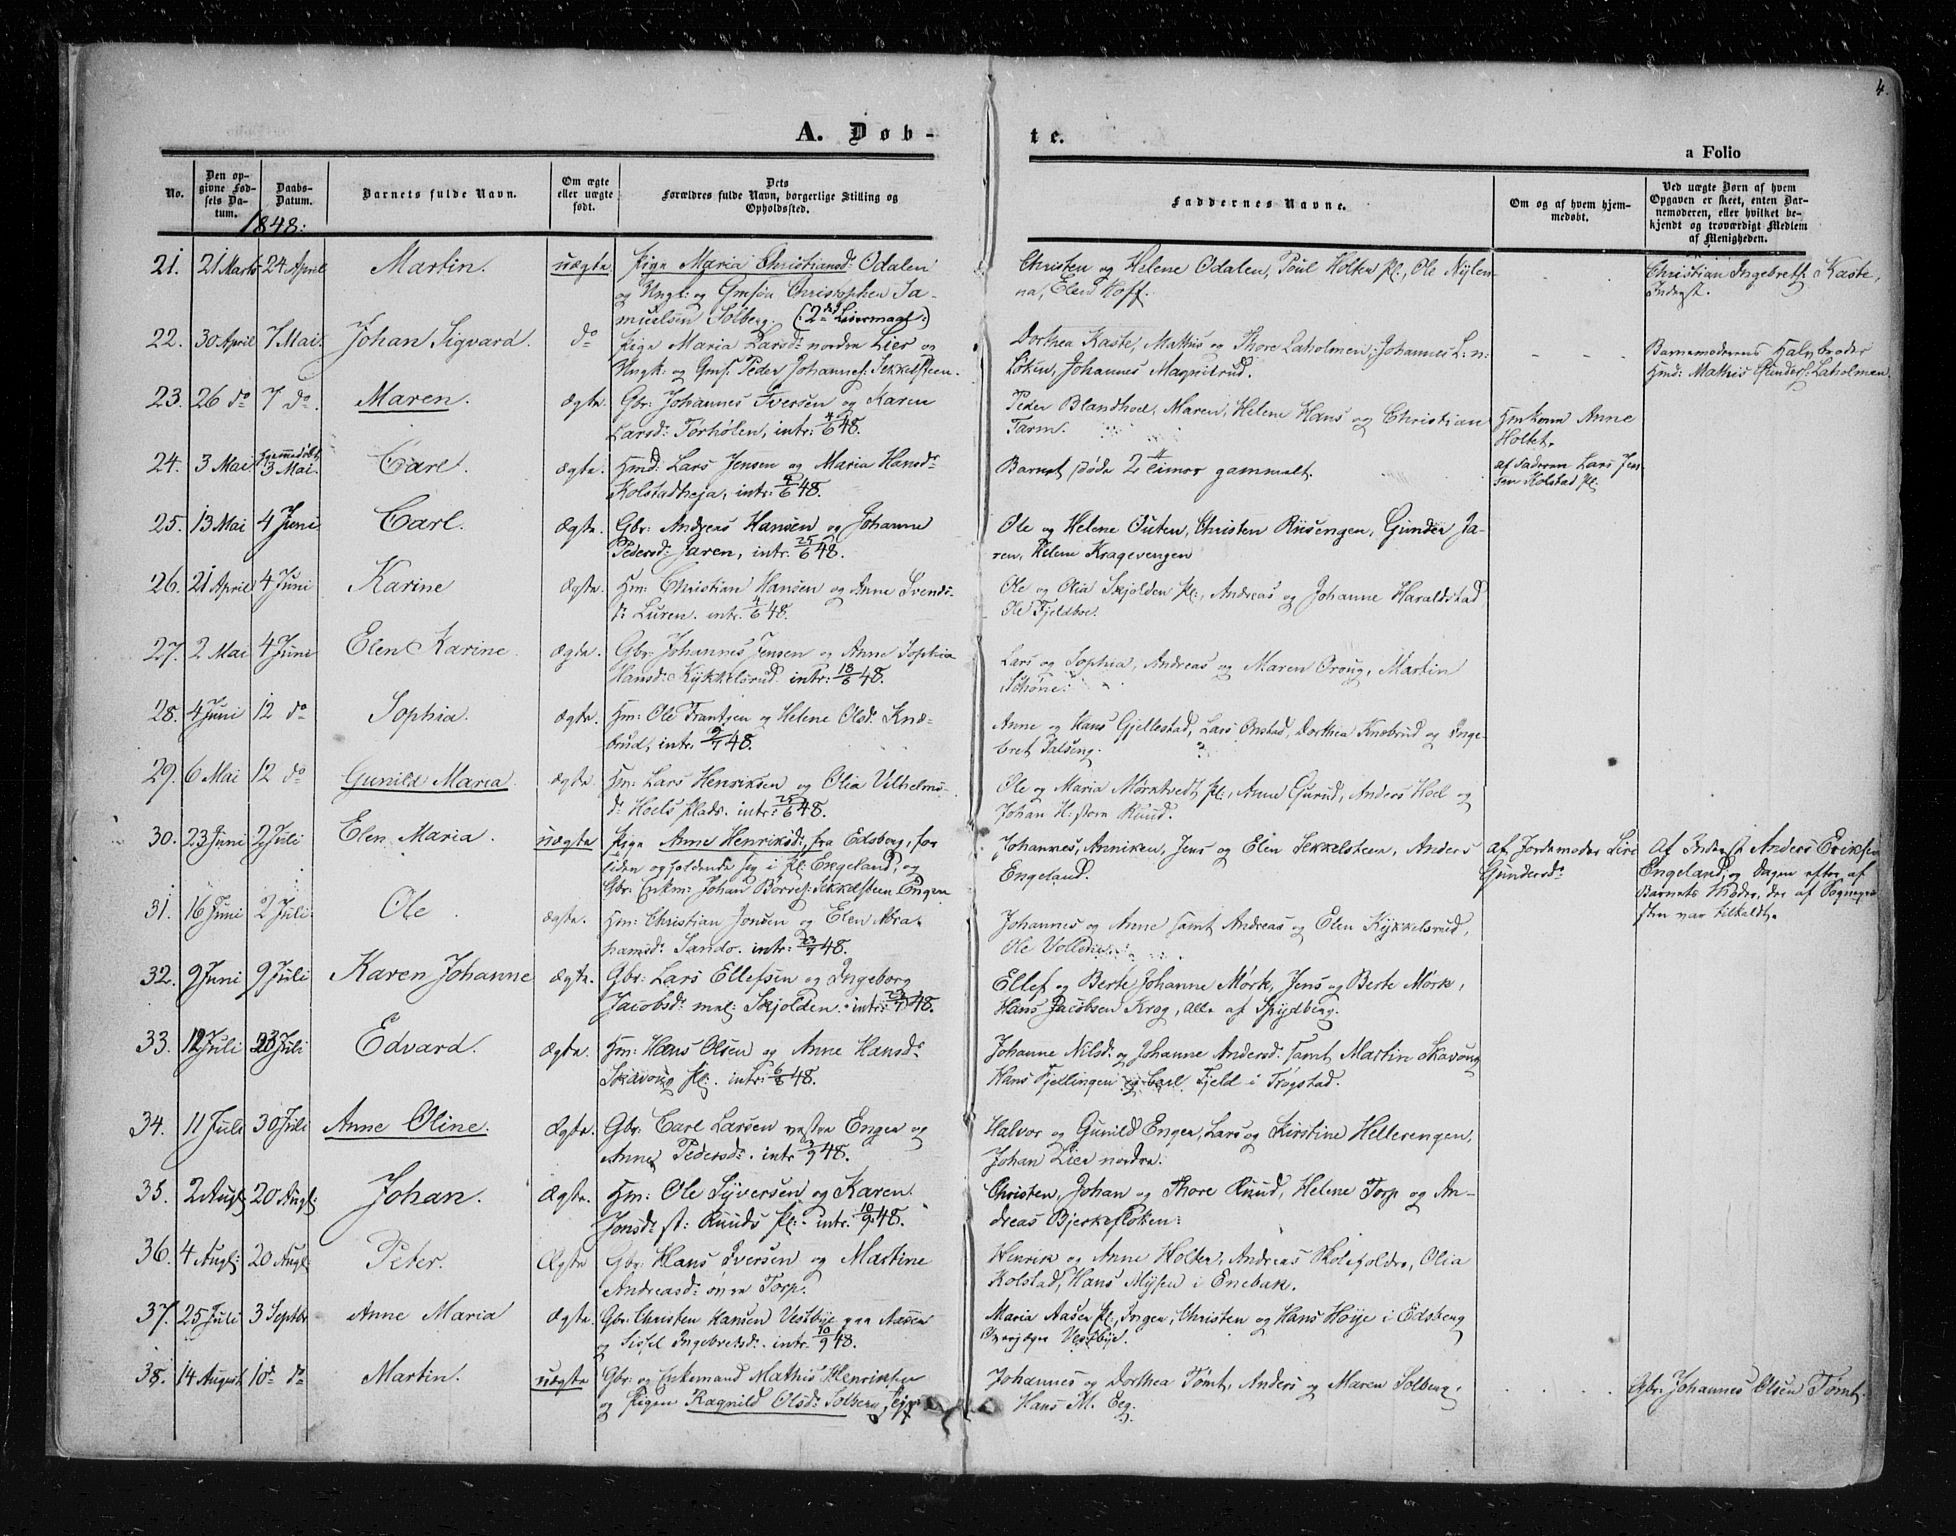 4.
A. Døb-
te.
a Folio
No.
Den op-
givne Fød-
sels Da-
tum.
Daabs-
Datum.
Barnets fulde Navn.
Om ægte
eller uægte
født.
Dets
Forældres fulde Navn, borgerlige Stilling og
Opholdssted.
Faddernes Navne.
Om og af hvem hjem-
medøbt.
Ved uægte Børn af hvem
Opgaven er skeet, enten Bar-
nemoderen, eller hvilket be-
kjendt og troværdigt Medlem
af Menigheden.
1848:
21. 21 Marts 24 April Martin. uægte Pige Maria Christiansd: Odalen
og Ungk: og Gmsøn Christopher Sa-
muelsen Solberg. (: 2det Leiermaal :)
Christen og Helene Odalen, Poul Holten pl., Ole Nylen-
na, Hoff.
Christian Ingebrets. Kaste,
Inderst.
22. 30 April 7 Mai. Johan Sigvard. do Pige Maria Larsd: nordre Lier og
Ungk: og Gms. Peder Johannes. Sekkelsteen.
Dorthea Kaste, Mathis og Thore Laholmen, Johannes L: n:
Løken, Johannes Magnitrud.
Barnemoderens Halvbroder
Hmd: Mathis Gunders. Laholmen.
23. 26 do 7 do. Maren. ægte. Gbr: Johannes Iversen og Karen
Larsd: Torhølen, intr: 4/6 48.
Peder Blandhoel, Maren, Helene Hans og Christian
Tarm.
Hmkone Anne
Holtet.
24. 3 Mai Hjemmedøbt 3 Mai. Carl. ægte. Hmd: Lars Jensen og Maria Hansdr
Kolstadheja, intr: 4/6 48.
Barnet døde 2 Timer gammelt.
af Faderen Lars Jen-
sen Kolstad pl.
25. 13 Mai 4 Juni Carl. Ægte. Gbr: Andreas Hansen og Johanne
Pedersd: Jaren, intr: 25/6 48.
Ole og Helene Outen, Christen Riisengen, Gunder Ja-
ren, Helene Kragevengen
26. 21 April 4 Juni Karine Ægte. Hm: Christian Hansen og Anne Svends-
d: Luren. intr: 4/6 48.
Ole og Olia Skjolden pl:, Andreas og Johanne Haraldstad
Ole Fjeldboe.
27. 2 Mai 4 Juni Elen Karine. ægte. Gbr: Johannes Jensen og Anne Sophia
Hansd: Kykkelsrud. intr: 18/6 48.
Lars og Sophia, Andreas og Maren Oroug, Martin
28. 4 Juni 12 do Sophia. ægte. Hm: Ole Frantsen og Helene Olsd: Knæ-
brud, intr: 9/7 48.
Anne og Hans Gjellestad, Lars Onstad, Dorthea Knæbrud og Inge-
bret
29. 6 Mai 12 do Gunild Maria. ægte Hm: Lars Henriksen og Olia Vilhelms-
d: Hoels plads. intr: 25/6 48.
Ole og Maria Mørktvedt pl:, Anne Gurud, Anders Hoel og
Johan H: store Ruud.
30. 23 Juni 2 Juli Elen Maria. uægte Pige Anne Henriksd: fra Edsberg, for
tiden opholdende sig i pl: Engeland, og
Gbr: Enkm: Johan Børres. Sekkelsteen Engen
Johannes, Anniken, Jens og Elen Sekkelsteen, Anders
Engeland.
af Jordemoder Live
Gundersdr
Af Inderst Anders Eriksen
Engeland, og Dagen efter af
Barnets Moder, der af Sognepræ-
sten var tilkaldt.
31. 16 Juni 2 Juli. Ole. ægte. Hm: Christian Jonsen og Elen Abra-
hamsd: Sando. intr: 23/7 48.
Johannes og Anne samt Andreas og Elen Kykkelsrud,
Ole
32. 9 Juni 9 Juli Karen Johanne ægte. Gbr: Lars Ellefsen og Ingeborg
Jacobsd: mel: Skjolden. intr: 23/7 48.
Ellef og Berte Johanne Mørk, Jens og Berte Mørk,
Hans Jacobsen Krog, alle af Spydberg.
33. 12 Juli 23 Juli Edvard. ægte. Hm: Hans Olsen og Anne Hansdr
Skavoug pl:. intr: 6/8 48.
Johanne Nilsd: og Johanne Andersd: samt Martin Skavoug
Hans Fjellingen og Carl Fjeld i Trøgstad.
34. 11 Juli 30 Juli Anne Oline. Ægte. Gbr: Carl Larsen vestre Enger og
Anne Pedersdr. intr 3/9 48.
Halvor og Gunild Enger, Lars og Kirstine Hellerengen,
Johan Lier nordre.
35. 2 Augs. 20 Augs: Johan. Ægte. Hm: Ole Syversen og Karen
Jonsdr st: Ruuds pl:. intr: 10/9 48.
Christen, Johan og Thore Ruud, Helene Torp og An-
dreas Bjerkefloten:
36. 4 Augs: 20 Augs: Peter. Ægte Gbr: Hans Iversen og Martine
Andreasd: øvre Torp.
Henrik og Anne Holter, Andreas Skolefoldre, Olia
Kolstad, Hans Mysen i Enebak.
37. 25 Juli 3 Septbr. Anne Maria Ægte. Gbr: Christen Hansen Vestbye paa Aasen
og Sissel Ingebretsdr. intr: 10/9 48.
Maria Aasen pl:, Jørgen, Christen og Hans Høje i Edsberg
Vestbye.
38. 14 August. 10de do Martin. uægte Gbr: og Enkemand Mathis Henriksen
og Pigen Ragnild Olsd: Solberg
Johannes og Dorthea Tømt, Anders og Maren Solberg,
Hans M. Eeg.
Gbr: Johannes Olsen Tømt.